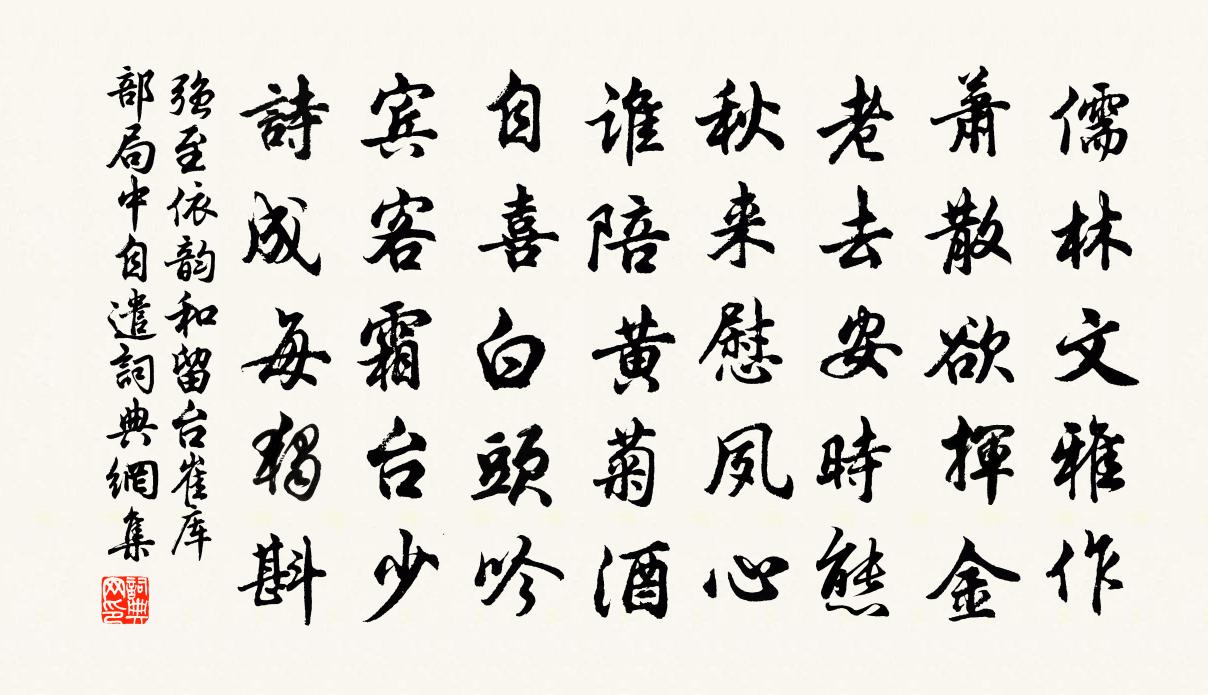 儒林文雅作
萧散欲揮金
老去安時態
秋来慰夙心
谁陪黄菊酒
自喜白頭吟
宾客霜台少
詩成每独斟
强至依韵和留台崔库
部局中自遣詞典網集
詞典
网印